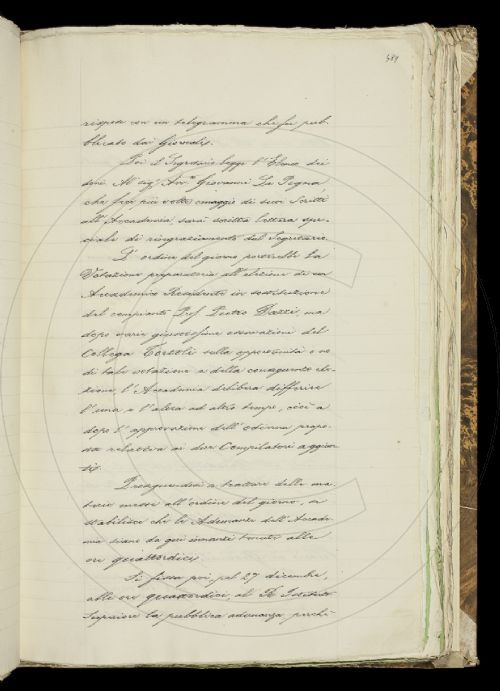 589
rispose con un telegramma che fu pub-
blicato dai Giornali.
Poi il Segretario legge l'Elenco dei
doni. Al sig.r Avv.o Giovanni La Pegna,
che fece più volte omaggio di suoi Scritti
all'Accademia, sarà scritta lettera spe-
ciale di ringraziamento dal Segretario.
L'ordine del giorno porterebbe la
Votazione preparatoria all'elezione di un
Accademico Residente in sostituzione
del compianto Prof. Pietro Dazzi, ma
dopo varie giustissime osservazioni del
Collega Tortoli sulla opportunità o no
di tale votazione e della conseguente ele-
zione, l'Accademia delibera differire
l'una e l'altra ad altro tempo, cioè a
dopo l'approvazione dell'odierna propo-
sta relativa ai due Compilatori aggiun-
ti.
Proseguendosi a trattare delle ma-
terie messe all'ordine del giorno, si
stabilisce che le Adunanze dell'Accade-
mia siano da qui innanzi tenute alle
ore quattordici.
Si fissa poi pel 27 dicembre,
alle ore quattordici, al R. Istituto
Superiore la pubblica adunanza, perchè